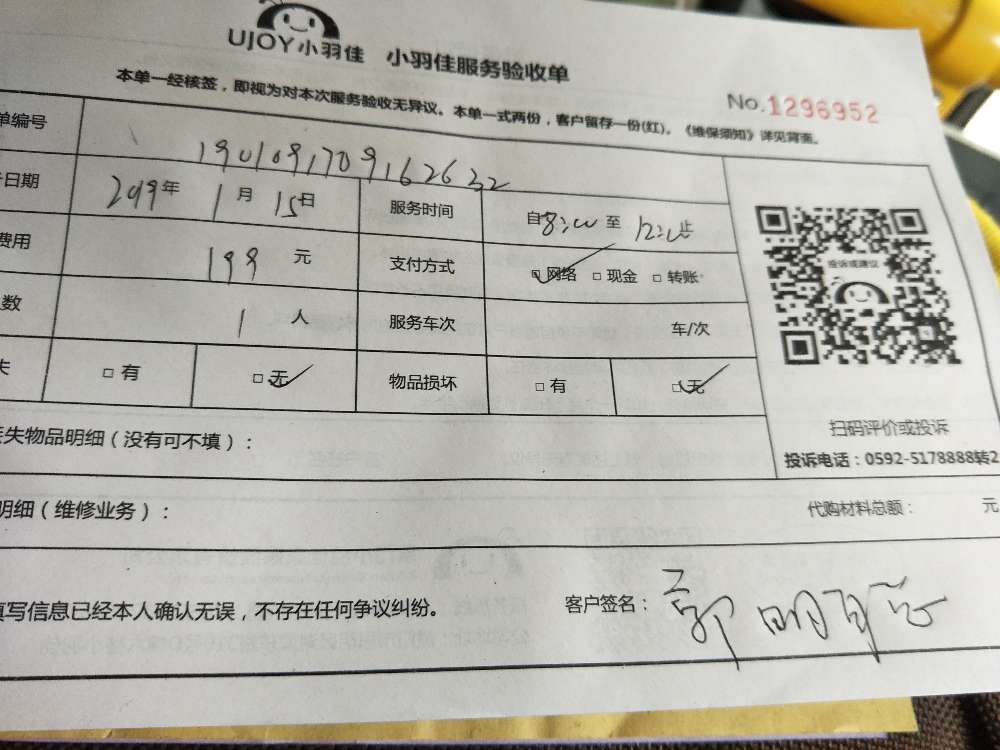 UJOY小羽佳 小羽佳服务验收单
本单一经核签，即视为对本次服务验收无异议。本单一式两份，客户留存一份(红)。《维保须知》详见背面。
No.1296952
单编号 19010917091626232
日期 2019年 1月 15日 服务时间 自8:00至12:00止
费用 199元 支付方式 □网络 □现金 □转账
数 1人 服务车次 车/次
失 □有 □无 物品损坏 □有 □无
投诉或建议
扫码评价或投诉
投诉电话：0592-5178888转2
丢失物品明细（没有可不填）：
明细（维修业务）： 代购材料总额： 元
填写信息已经本人确认无误，不存在任何争议纠纷。 客户签名：郭明